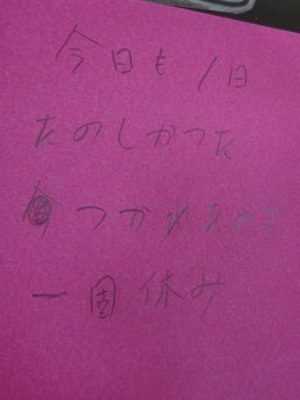 今日も1日
たのしかった
つかれため
一固休み